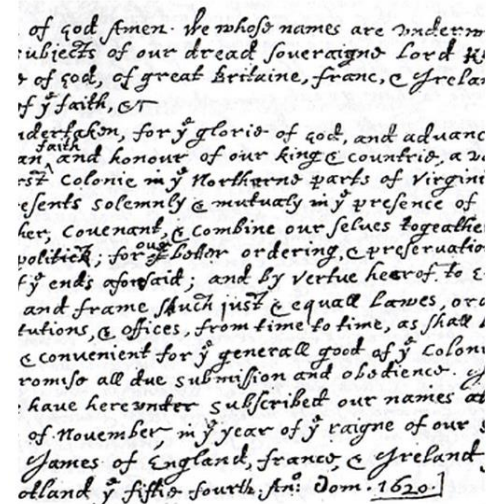 of god Amen. We whose names are underw
subjects of our dread soveraigne Lord K
of god, of great Britaine, franc, & Irela
of yᵉ faith, &c
ndertaken, for yᵉ glorie of god, and advanc
faith
an, and honour of our king & countrie, a vo
rst colonie in yᵉ Northerne parts of Virgini
esents solemnly & mutualy in yᵉ presence of
her, covenant, & combine our selves togeather
our
politick; for yᵉ better ordering, & preservatio
f yᵉ ends aforsaid; and by vertue hearof. to e
and frame shuch just & equall Lawes, ord
tutions, & offices, from time to time, as shall b
& convenient for yᵉ generall good of yᵉ Coloni
romise all due submission and obedience.
have hereunder subscribed our names
of November, in yᵉ year of yᵉ raigne of our s
James of England, franc, & Ireland
otland yᵉ fiftie fourth. Ano: Dom. 1620.]